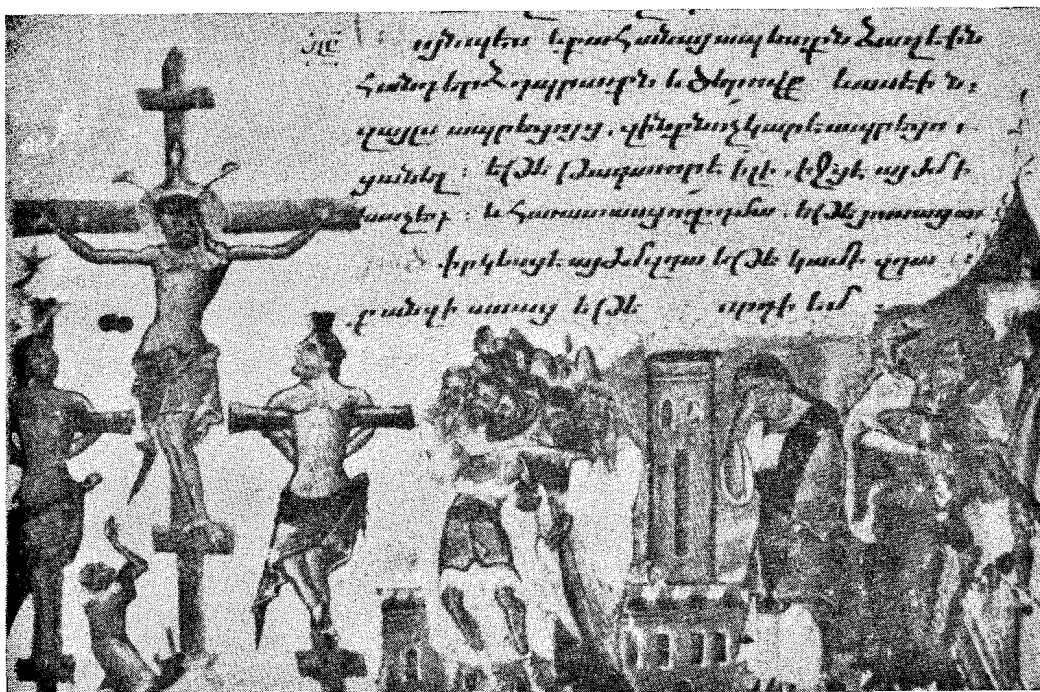 քահանայապետքն
հանդերձ դպրաւքն եւ ծերովք
զայլս ապրեցոյց, զինքն ոչ կարէ ապրեցու
ցանել : եթէ թագաւոր է իլի, իջցէ այժմ ի
խաչէդ : եւ հաւատասցուք դմա. եթէ յուսացաւ
փրկեսցէ այժմ զդա եթէ կամի զդա
քանզի ասաց եթէ որդի եմ